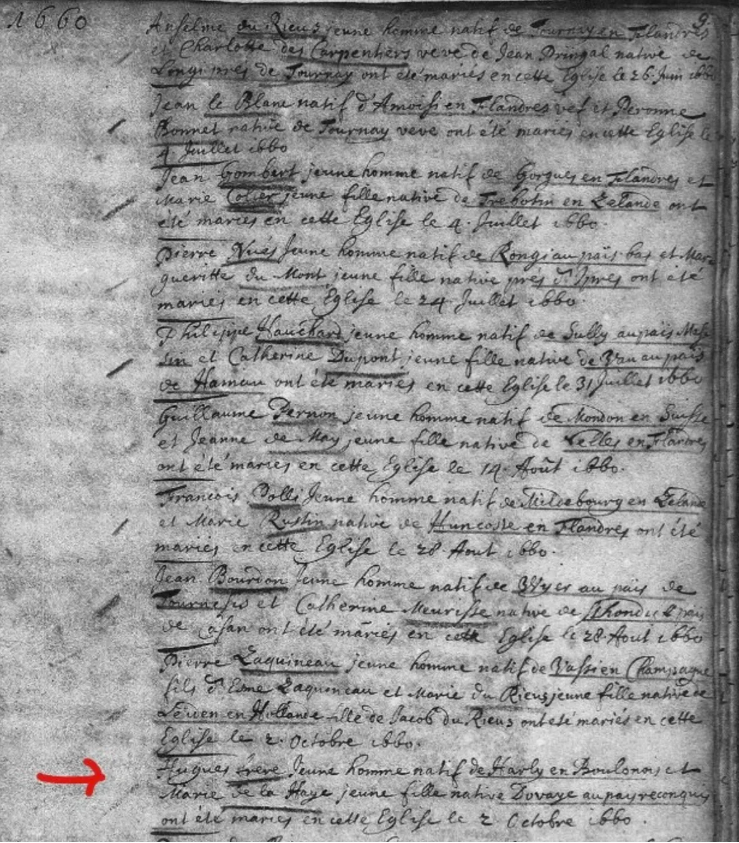 1660
9.
Anselme du Rieux jeune homme natif de Tournay en Flandres
et Charlotte des Carpentiers veve de Jean Dringal native de
Longi pres de Tournay ont été mariés en cette Eglise le 26 Juin 1660
Jean le Blanc natif d'Amoisi en Flandres vef et Peronne
Bonnet native de Tournay veve ont été mariés en cette Eglise le
4 Juillet 1660
Jean Gombert jeune homme natif de Gorgues en Flandres et
Marie Colier jeune fille native de Trebotin en Zelande ont
été mariés en cette Eglise le 4 Juillet 1660.
Pierre jeune homme natif de Rongi au païs bas et Mar
gueritte du Mont jeune fille native pres d'Ipres ont été
mariés en cette Eglise le 24 Juillet 1660.
Philippe Hauchard jeune homme natif de Sully au païs Mes
sin et Catherine Dupont jeune fille native de au païs
de Hainau ont été mariés en cette Eglise le 31 Juillet 1660
Guillaume Pernon jeune homme natif de Moudon en Suisse
et Jeanne de May jeune fille native de Celles en Flandres
ont été mariés en cette Eglise le 14 Août 1660.
Francois Polli Jeune homme natif de Middebourg en Zelane
et Marie Rustin native de Huncoste en Flandres ont été
mariés en cette Eglise le 28 Aout 1660.
Jean Bourdon Jeune homme natif de au païs de
Tournesis et Catherine Meurisse native de païs
de ont été mariés en cette Eglise le 28 Aout 1660
Pierre Laquineau jeune homme natif de Vassi en Champagne
fils d'Edne Laquineau et Marie du Rieux jeune fille native de
Leiden en Hollande fille de Jacob du Rieux ont été mariés en cette
Eglise le 2 Octobre 1660.
Hugues frere Jeune homme natif de Harly en Boulonois et
Marie de la Haye jeune fille native Dovaye au pays reconquis
ont été mariés en cette Eglise le 2 Octobre 1660.